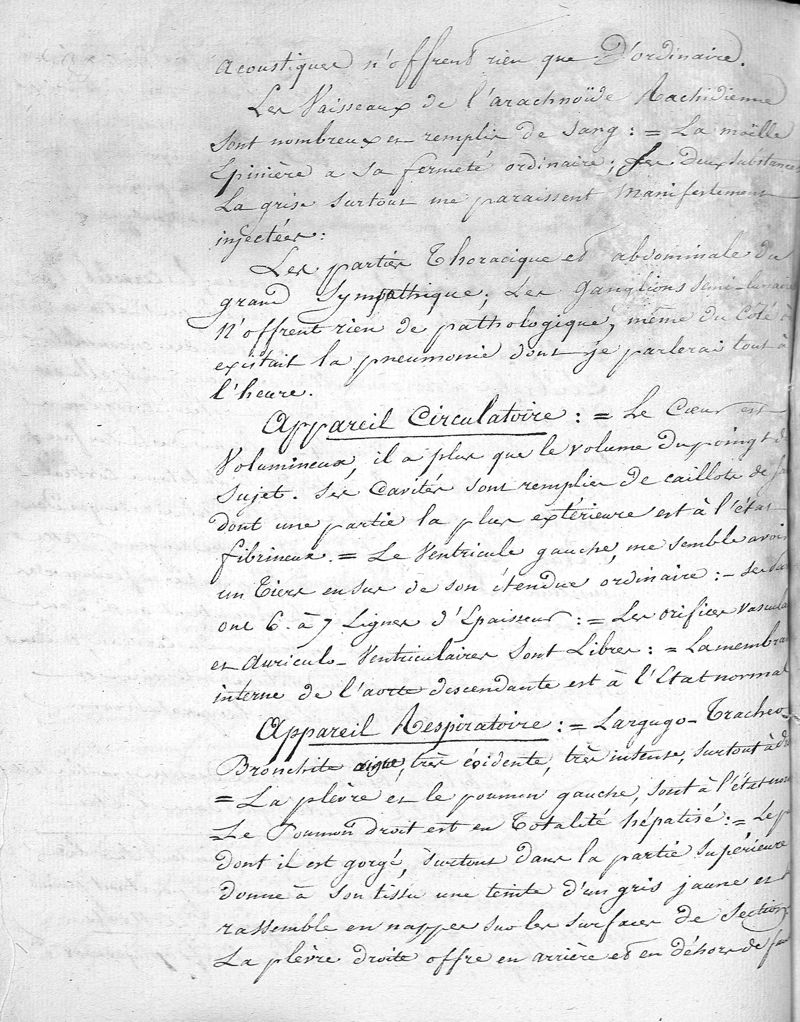 acoustiques n'offrent rien que d'ordinaire.
Les Vaisseaux de l'arachnoïde Rachidienne
sont nombreux et remplis de sang : = La moëlle
Epinière a sa fermeté ordinaire ; les deux substances
La grise surtout me paraissent Manifestement
injectées :
Les parties Thoracique et abdominale du
grand Sympathique, Les Ganglions Semi-lunaires
N'offrent rien de pathologique, même du Coté
existait la pneumonie dont je parlerai tout à
l'heure.
Appareil Circulatoire : = Le Cœur est
Volumineux, il a plus que le volume du poingt du
Sujet. Ses Cavités sont remplies de caillots de
dont une partie la plus extérieure est à l'état
fibrineux. = Le Ventricule gauche, me semble avoir
un Tiers en sus de son étendue ordinaire : - ses
ont 6. à 7 Lignes d'Epaisseur : = Les orifices vascula
et Auriculo-Ventriculaires Sont Libres : = La membra
interne de l'aorte descendante est à l'Etat normal
Appareil Respiratoire : = Laryngo-Tracheo-
Bronchite aigue, très évidente, très intense, surtout à
= La plèvre et le poumon gauche, sont à l'état
Le Poumon droit est en Totalité hépatisé : = Le
dont il est gorgé, surtout dans la partie supérieure
donne à son tissu une teinte d'un gris jaune et
rassemble en nappes sur les surfaces de Section
La plèvre droite offre en arrière et en déhors de